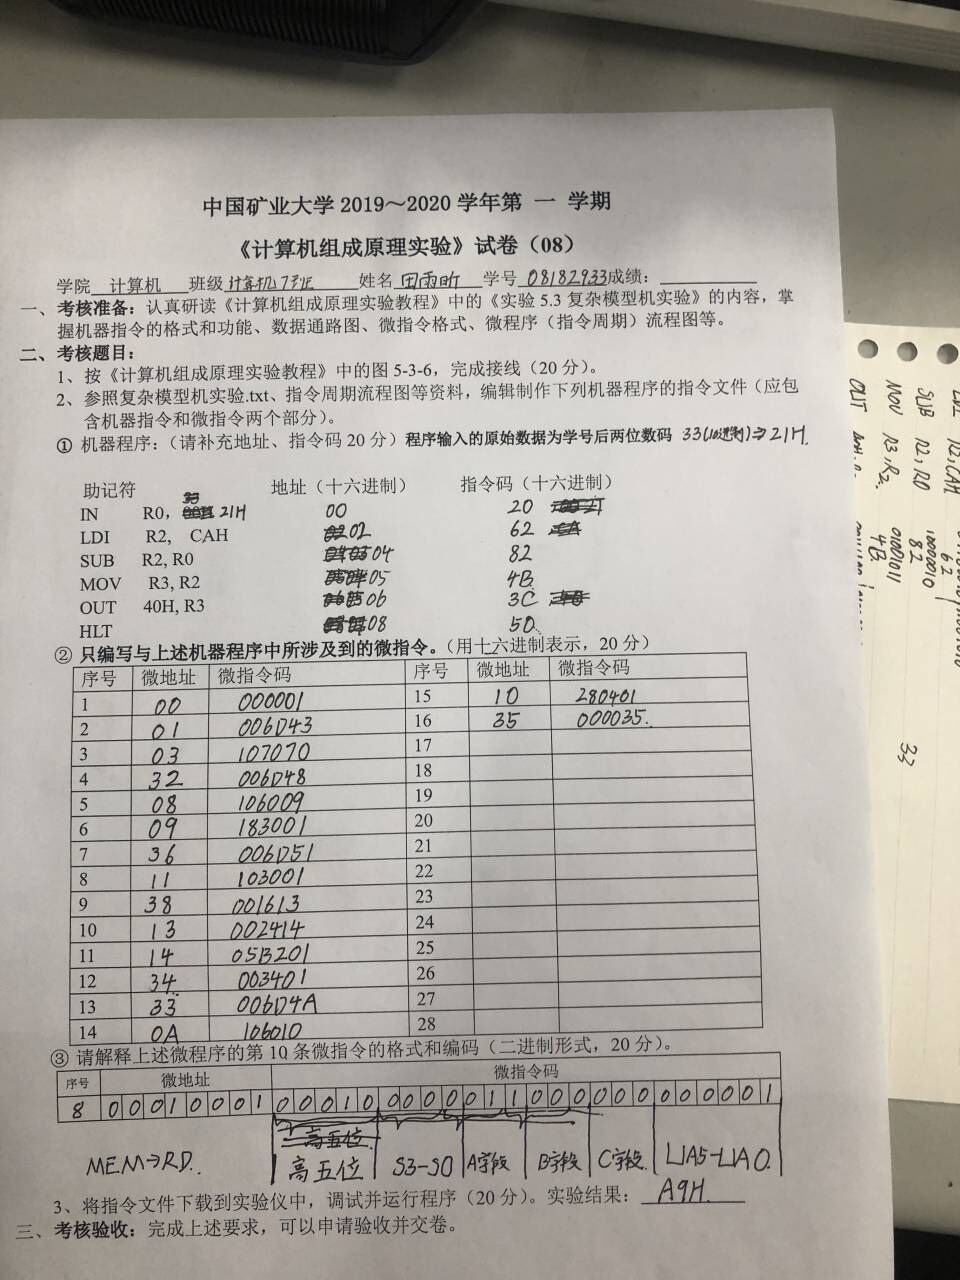 中国矿业大学 2019～2020 学年第 一 学期
《计算机组成原理实验》试卷（08）
学院 计算机 班级 计算机 姓名 田雨昕 学号 08182933 成绩：
一、考核准备：认真研读《计算机组成原理实验教程》中的《实验 5.3 复杂模型机实验》的内容，掌
握机器指令的格式和功能、数据通路图、微指令格式、微程序（指令周期）流程图等。
二、考核题目：
1、按《计算机组成原理实验教程》中的图 5-3-6，完成接线（20 分）。
2、参照复杂模型机实验.txt、指令周期流程图等资料，编辑制作下列机器程序的指令文件（应包
含机器指令和微指令两个部分）。
① 机器程序：（请补充地址、指令码 20 分）程序输入的原始数据为学号后两位数码 33(10进制)⇒21H.
助记符 地址（十六进制） 指令码（十六进制）
33
IN R0, 21H 00 20
LDI R2, CAH 02 62
SUB R2, R0 04 82
MOV R3, R2 05 4B
OUT 40H, R3 06 3C
HLT 08 50
② 只编写与上述机器程序中所涉及到的微指令。（用十六进制表示，20 分）
序号 微地址 微指令码 序号 微地址 微指令码
1 00 000001 15 10 280401
2 01 006D43 16 35 000035.
3 03 107070 17
4 32 006D48 18
5 08 106009 19
6 09 183001 20
7 36 006D51 21
8 11 103001 22
9 38 001613 23
10 13 002414 24
11 14 05B201 25
12 34 003401 26
13 33 006D4A 27
14 0A 106010 28
③ 请解释上述微程序的第 10 条微指令的格式和编码（二进制形式，20 分）。
序号 微地址 微指令码
8 0 0 0 1 0 0 0 1 0 0 0 1 0 0 0 0 0 0 1 1 0 0 0 0 0 0 0 0 0 0 0 1
高五位
MEM→RD. 高五位 S3-S0 A字段 B字段 C字段 UA5-UA0
3、将指令文件下载到实验仪中，调试并运行程序（20 分）。实验结果： A9H.
三、考核验收：完成上述要求，可以申请验收并交卷。
LDI R2, CAH
62
SUB R2, R0 10000010
82
MOV R3, R2. 01001011
4B
OUT
33